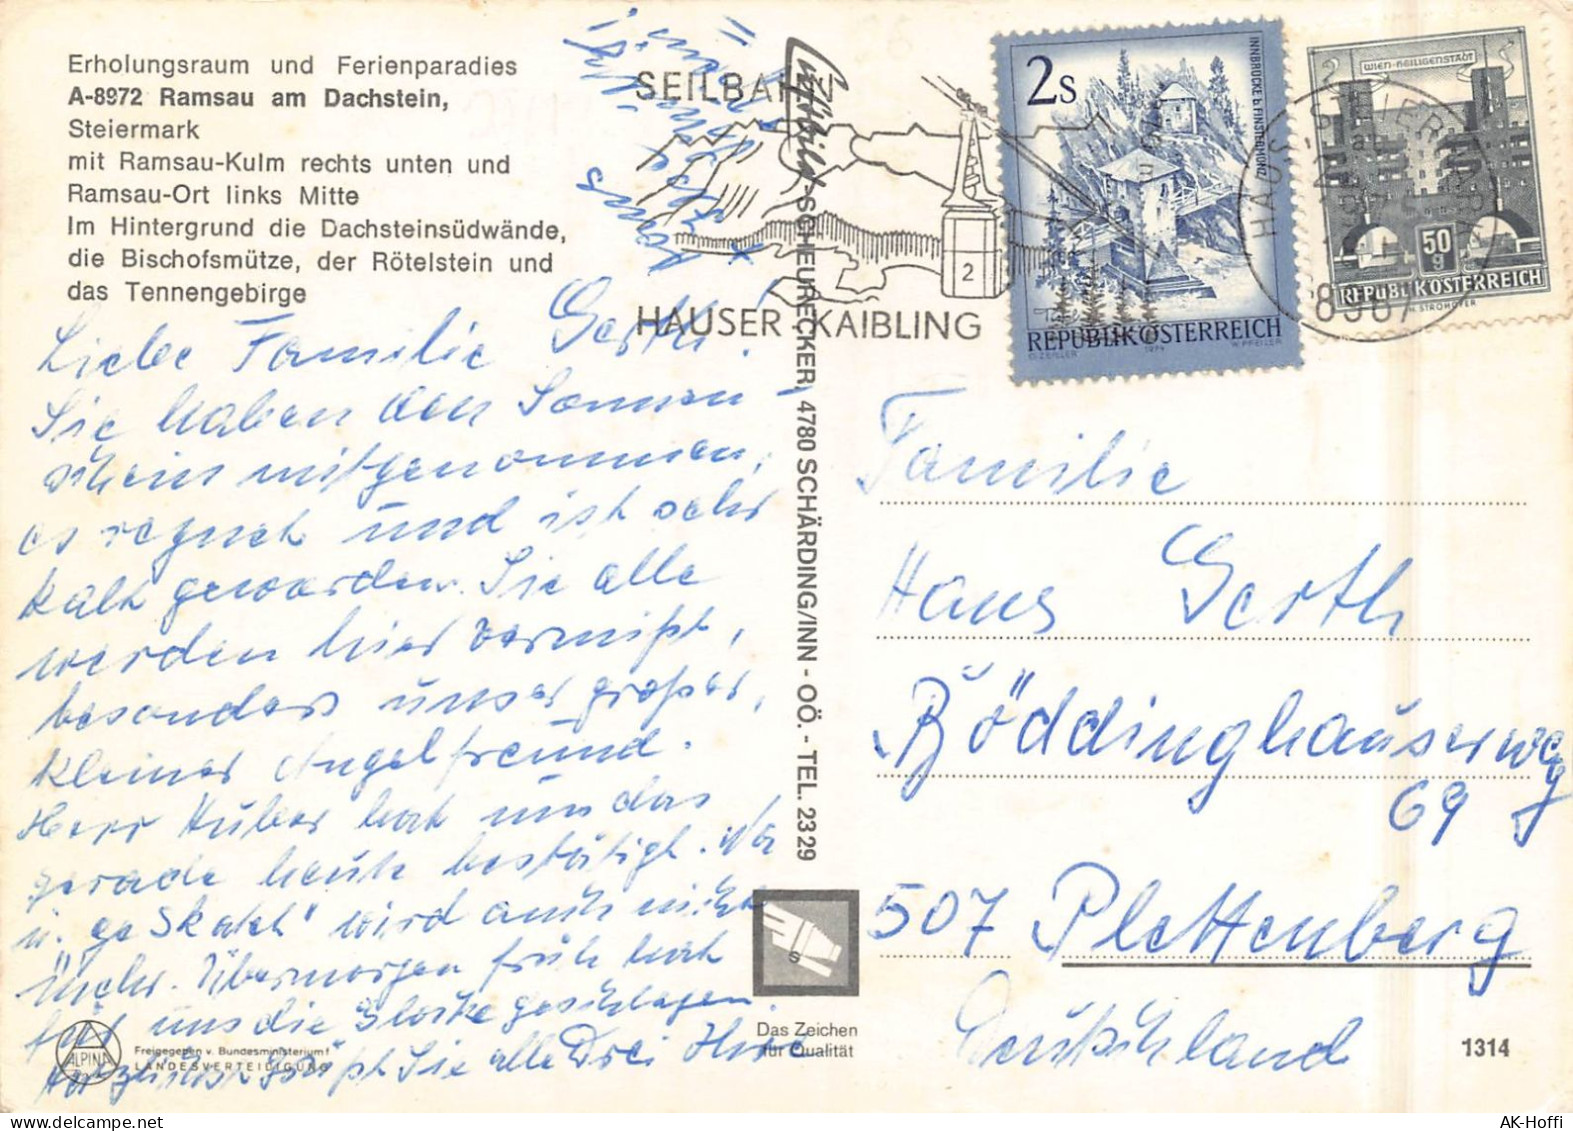 Erholungsraum und Ferienparadies
A-8972 Ramsau am Dachstein,
Steiermark
mit Ramsau-Kulm rechts unten und
Ramsau-Ort links Mitte
Im Hintergrund die Dachsteinsüdwände,
die Bischofsmütze, der Rötelstein und
das Tennengebirge
Liebe Familie Gerth!
Sie haben den Sonnen-
schein mitgenommen,
es regnet und ist sehr
kalt geworden. Sie alle
werden hier vermißt,
besonders unser großer,
kleiner Angelfreund.
Herr Huber hat uns das
gerade heute bestätigt.
u. geskatet" wird auch nicht
mehr. Übermorgen früh hat
für uns die Glocke geschlagen.
Herzlichst grüßt Sie alle Drei Ihre
Luftbild-SCHEURECKER, 4780 SCHÄRDING/INN - OÖ. - TEL. 2329
SEILBAHN
2
HAUSER KAIBLING
2S
INNBRÜCKE b. FINSTERMÜNZ
REPUBLIK ÖSTERREICH
O. ZEILLER 1974 W. PFEILER
WIEN-HEILIGENSTADT
50 g
REPUBLIK ÖSTERREICH
8967
Familie
Hans Gerth
Böddinghauserweg
69
507 Plettenberg
Deutschland
ALPINA
Freigegeben v. Bundesministerium f.
LANDESVERTEIDIGUNG
S
Das Zeichen
für Qualität
1314
AK-Hoffi